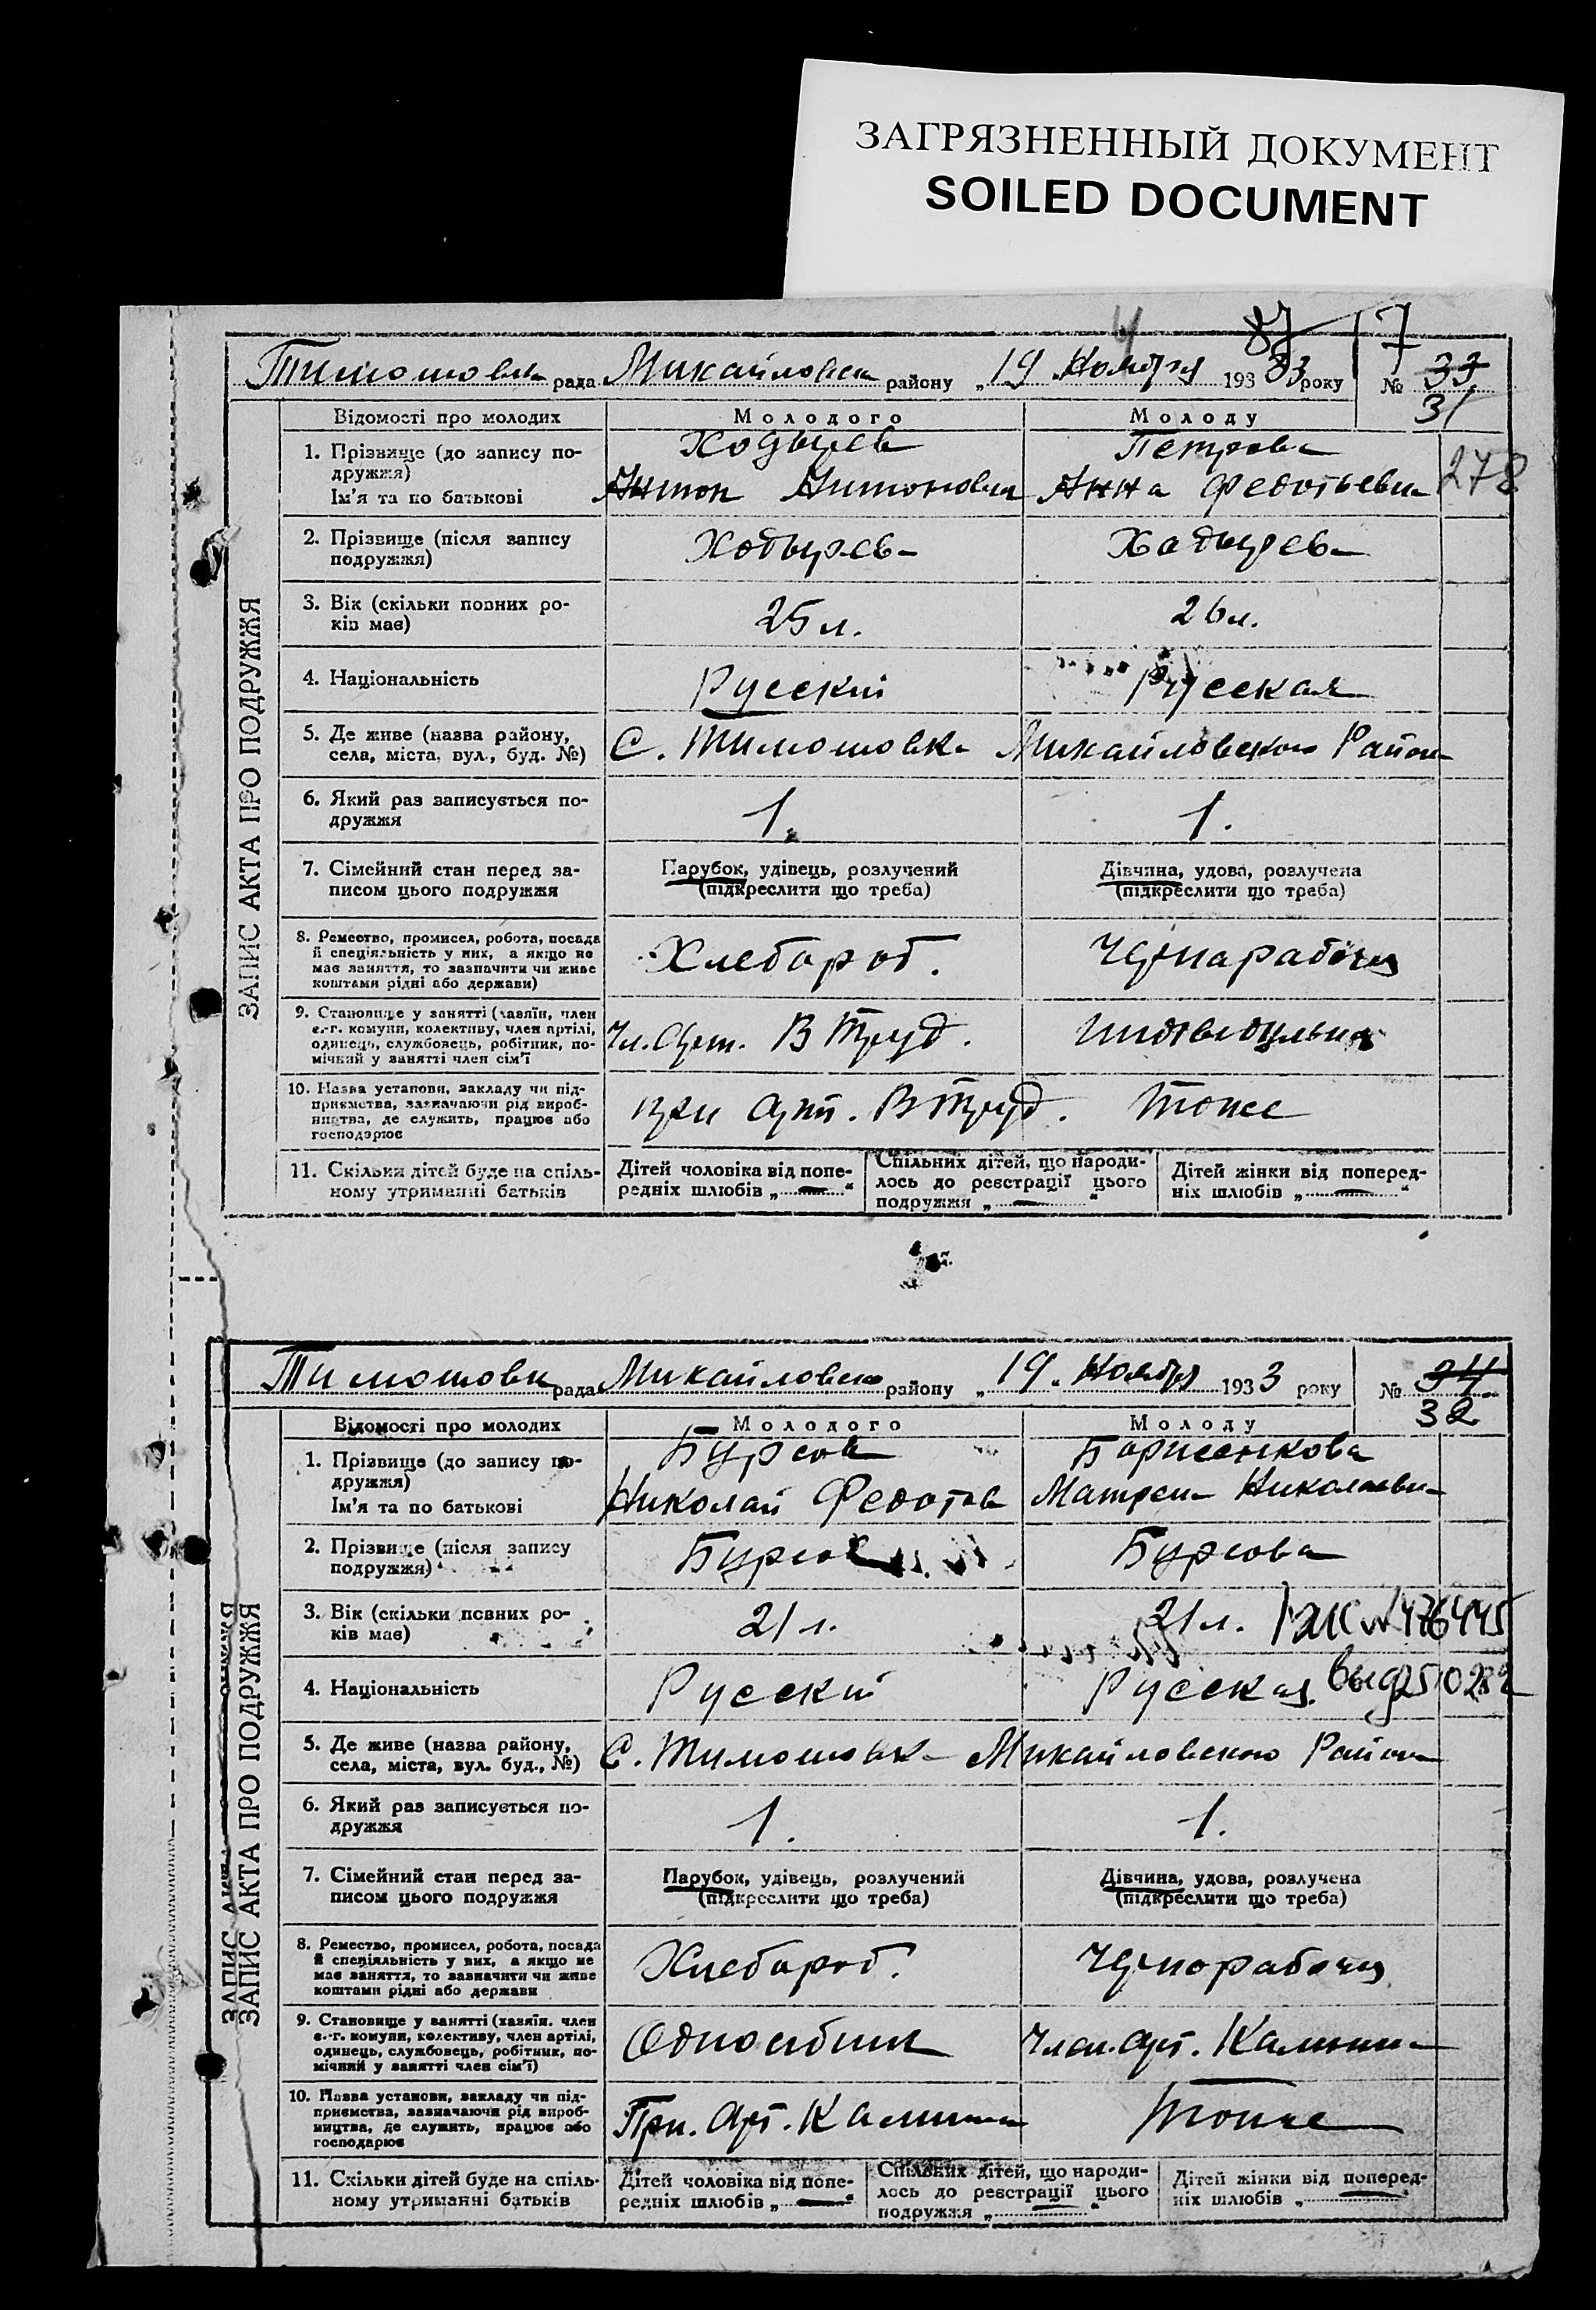 ЗАГРЯЗНЕННЫЙ ДОКУМЕНТ
SOILED DOCUMENT
87 17
Тимошовк рада Михайловск району „19 Ноября 1933 року № 33
31
ЗАПИС АКТА ПРО ПОДРУЖЖЯ
Відомості про молодих Молодого Молоду
1. Прізвище (до запису по-
дружжя)
Ім'я та по батькові
Ходырев
Антон Антонович
Петрова
Анна Федотьевн
278
2. Прізвище (після запису
подружжя)
Ходырев Хадырев
3. Вік (скільки повних ро-
ків має)
25 л. 26 л.
4. Національність Русский Русская
5. Де живе (назва району,
села, міста, вул., буд. №)
С. Тимошовк Михайловского Район
6. Який раз записується по-
дружжя
1. 1.
7. Сімейний стан перед за-
писом цього подружжя
Парубок, удівець, розлучений
(підкреслити що треба)
Дівчина, удова, розлучена
(підкреслити що треба)
8. Ремество, промисел, робота, посада
й спеціяльність у них, а якщо не
має заняття, то зазначити чи живе
коштами рідні або держави)
Хлебороб. Чернарабочая
9. Становище у занятті (хазяїн, член
с.-г. комуни, колективу, член артілі,
одинець, службовець, робітник, по-
мічний у занятті член сім'ї
Чл. Арт. В Труд.
10. Назва установи, закладу чи під-
приємства, зазначаючи рід вироб-
ництва, де служить, працює або
господарює
при Арт. В Труд. Тоже
11. Скільки дітей буде на спіль-
ному утриманні батьків
Дітей чоловіка від попе-
редніх шлюбів „ — “
Спільних дітей, що народи-
лось до реєстрації цього
подружжя „ — “
Дітей жінки від поперед-
ніх шлюбів „ — “
Тимошовк рада Михайловск району „19. Ноября 1933 року № 34
32
ЗАПИС АКТА ПРО ПОДРУЖЖЯ
ЗАПИС АКТА ПРО ПОДРУЖЖЯ
Відомості про молодих Молодого Молоду
1. Прізвище (до запису по-
дружжя)
Ім'я та по батькові
Бурсов
Николай Федотов
Борисенкова
Матрен Николаевн
2. Прізвище (після запису
подружжя)
Бурсов Бурсова
3. Вік (скільки повних ро-
ків має)
21 л. 21 л. 476445
4. Національність Русский Русская. выд
5. Де живе (назва району,
села, міста, вул. буд., №)
С. Тимошовк Михайловского Район
6. Який раз записується по-
дружжя
1. 1.
7. Сімейний стан перед за-
писом цього подружжя
Парубок, удівець, розлучений
(підкреслити що треба)
Дівчина, удова, розлучена
(підкреслити що треба)
8. Ремество, промисел, робота, посада
й спеціяльність у них, а якщо не
має заняття, то зазначити чи живе
коштами рідні або держави
Хлебороб. Чернорабочая
9. Становище у занятті (хазяїн. член
с.-г. комуни, колективу, член артілі,
одинець, службовець, робітник, по-
мічний у занятті член сім'ї)
Член. Арт. Калинин
10. Назва установи, закладу чи під-
приємства, зазначаючи рід вироб-
ництва, де служить, працює або
господарює
При. Арт. Калинин Тоже
11. Скільки дітей буде на спіль-
ному утриманні батьків
Дітей чоловіка від попе-
редніх шлюбів „ — “
Спільних дітей, що народи-
лось до реєстрації цього
подружжя „ — “
Дітей жінки від поперед-
ніх шлюбів „ — “